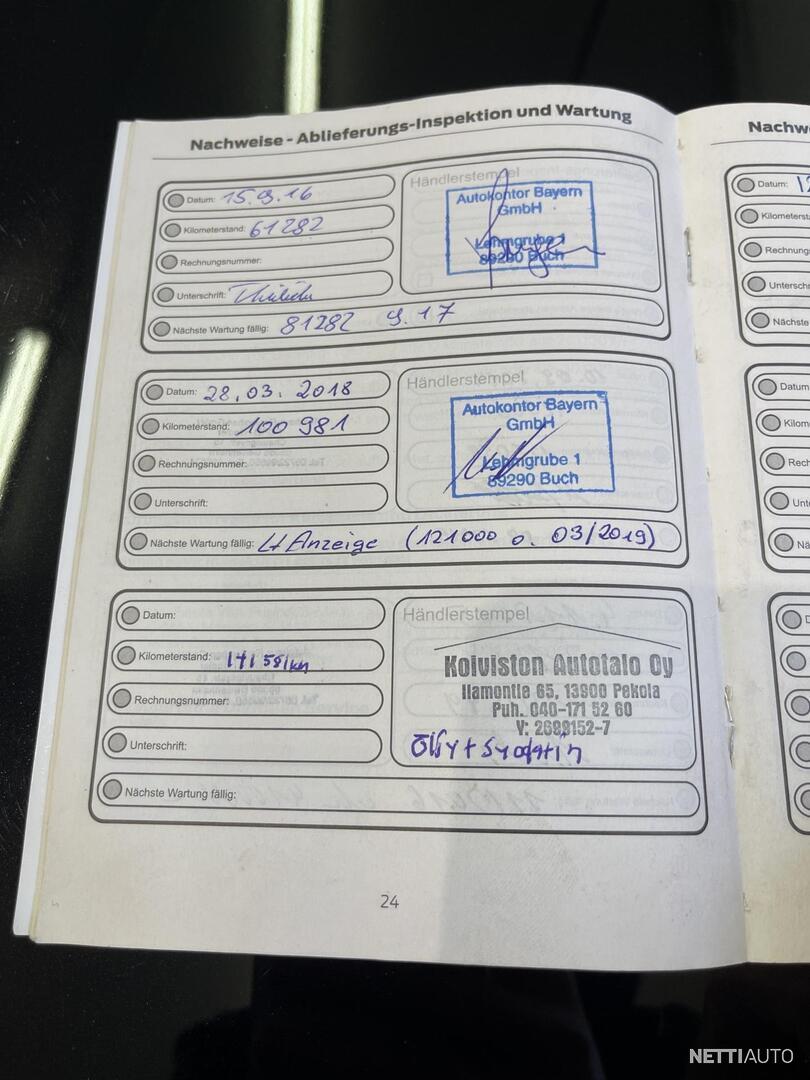 Nachweise - Ablieferungs-Inspektion und Wartung
Datum: 15.9.16
Kilometerstand: 61282
Rechnungsnummer:
Unterschrift:
Nächste Wartung fällig: 81282 9.17
Händlerstempel
Autokontor Bayern
GmbH
Lehmgrube 1
89290 Buch
Datum: 28.03.2018
Kilometerstand: 100 981
Rechnungsnummer:
Unterschrift:
Nächste Wartung fällig: Lt Anzeige (121000 o. 03/2019)
Händlerstempel
Autokontor Bayern
GmbH
Lehmgrube 1
89290 Buch
Datum:
Kilometerstand:
Rechnungsnummer:
Unterschrift:
Nächste Wartung fällig:
Händlerstempel
Koiviston Autotalo Oy
Ilamontie 65, 13900 Pekola
Puh. 040-171 52 60
Y: 2689152-7
24
Nachw
Datum:
Kilometerstand
Rechnung
Untersch
Nächste
Datum:
Kilom
Rech
Unt
Nä
NETTIAUTO